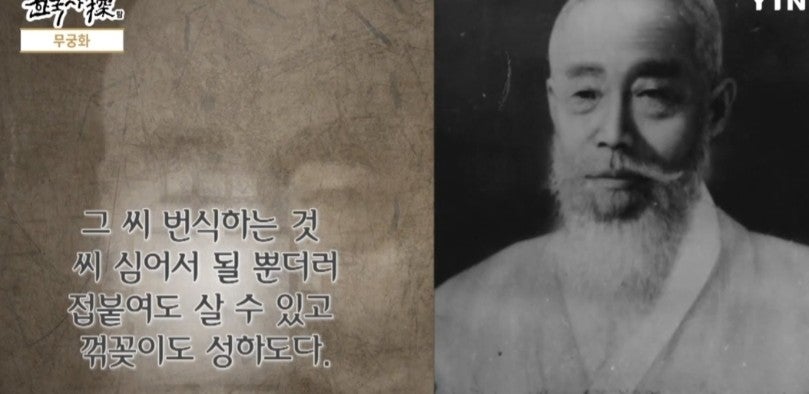 무궁화
YTN
그 씨 번식하는 것
씨 심어서 될 뿐더러
접붙여도 살 수 있고
꺾꽂이도 성하도다.